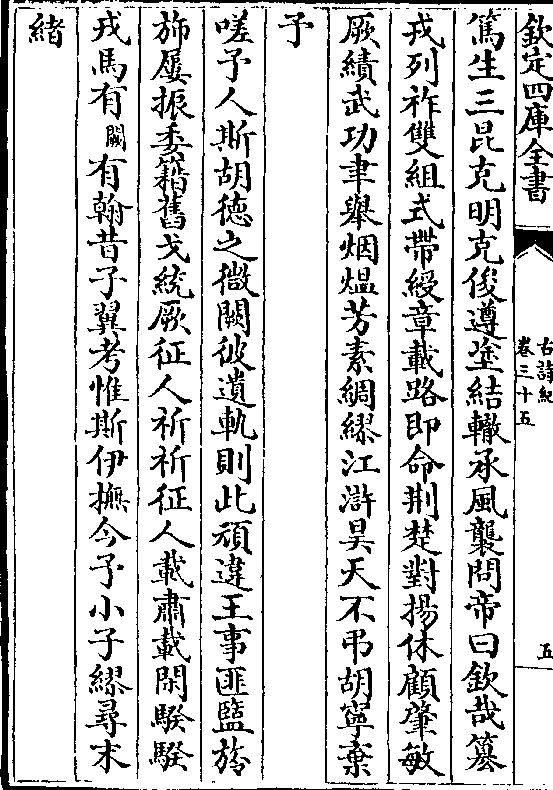 欽定四庫全書
古詩紀
卷三十五
五
篤生三昆克明克俊遵塗結轍承風襲問帝曰欽哉纂
戎列祚雙組式帶綬章載路即命荆楚對揚休顧肇敏
厥績武功聿舉烟煴芳素綢繆江滸昊天不弔胡寧棄
予
嗟予人斯胡德之微闕彼遺軌則此頑違王事匪盬旍
斾屢振委籍舊戈統厥征人祈祈征人載肅載閑騤騤
戎馬有闕有翰昔予翼考惟斯伊撫今予小子繆尋末
緒